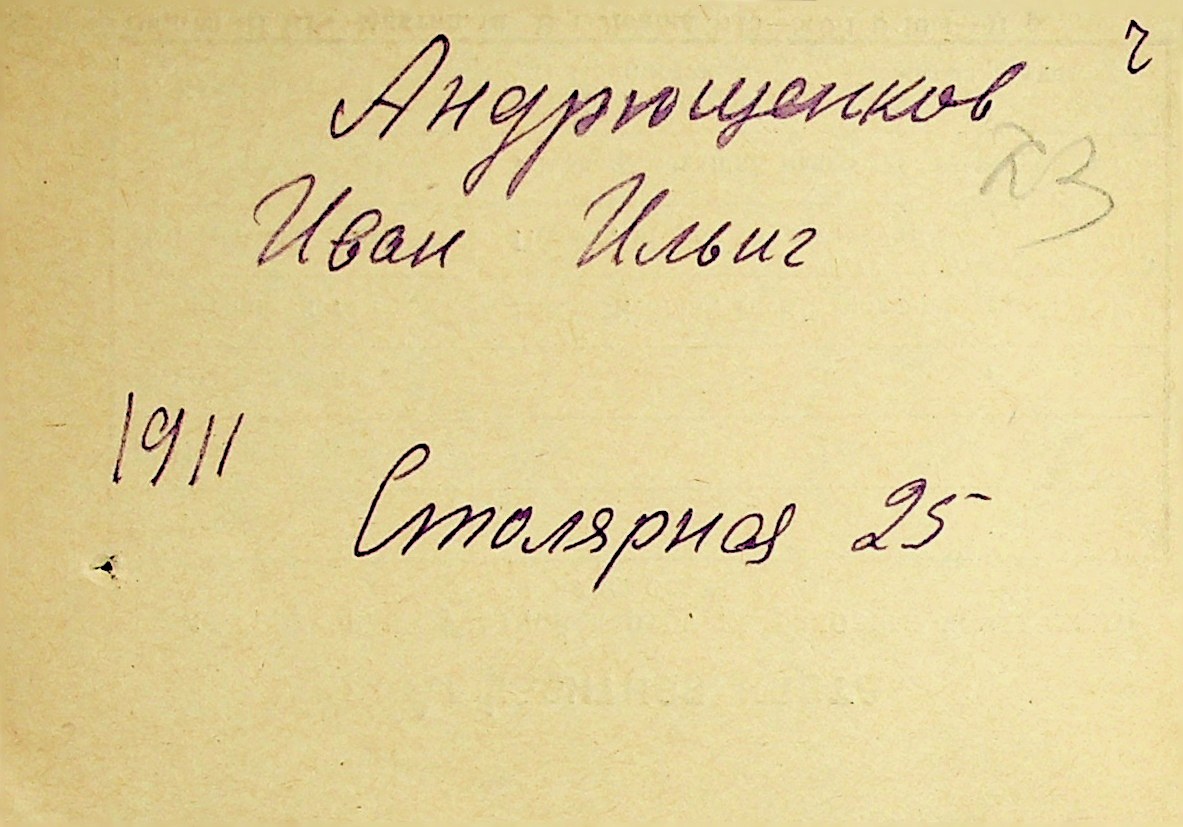 ч
Андрющенков
Иван Ильич
1911
Столярная 25